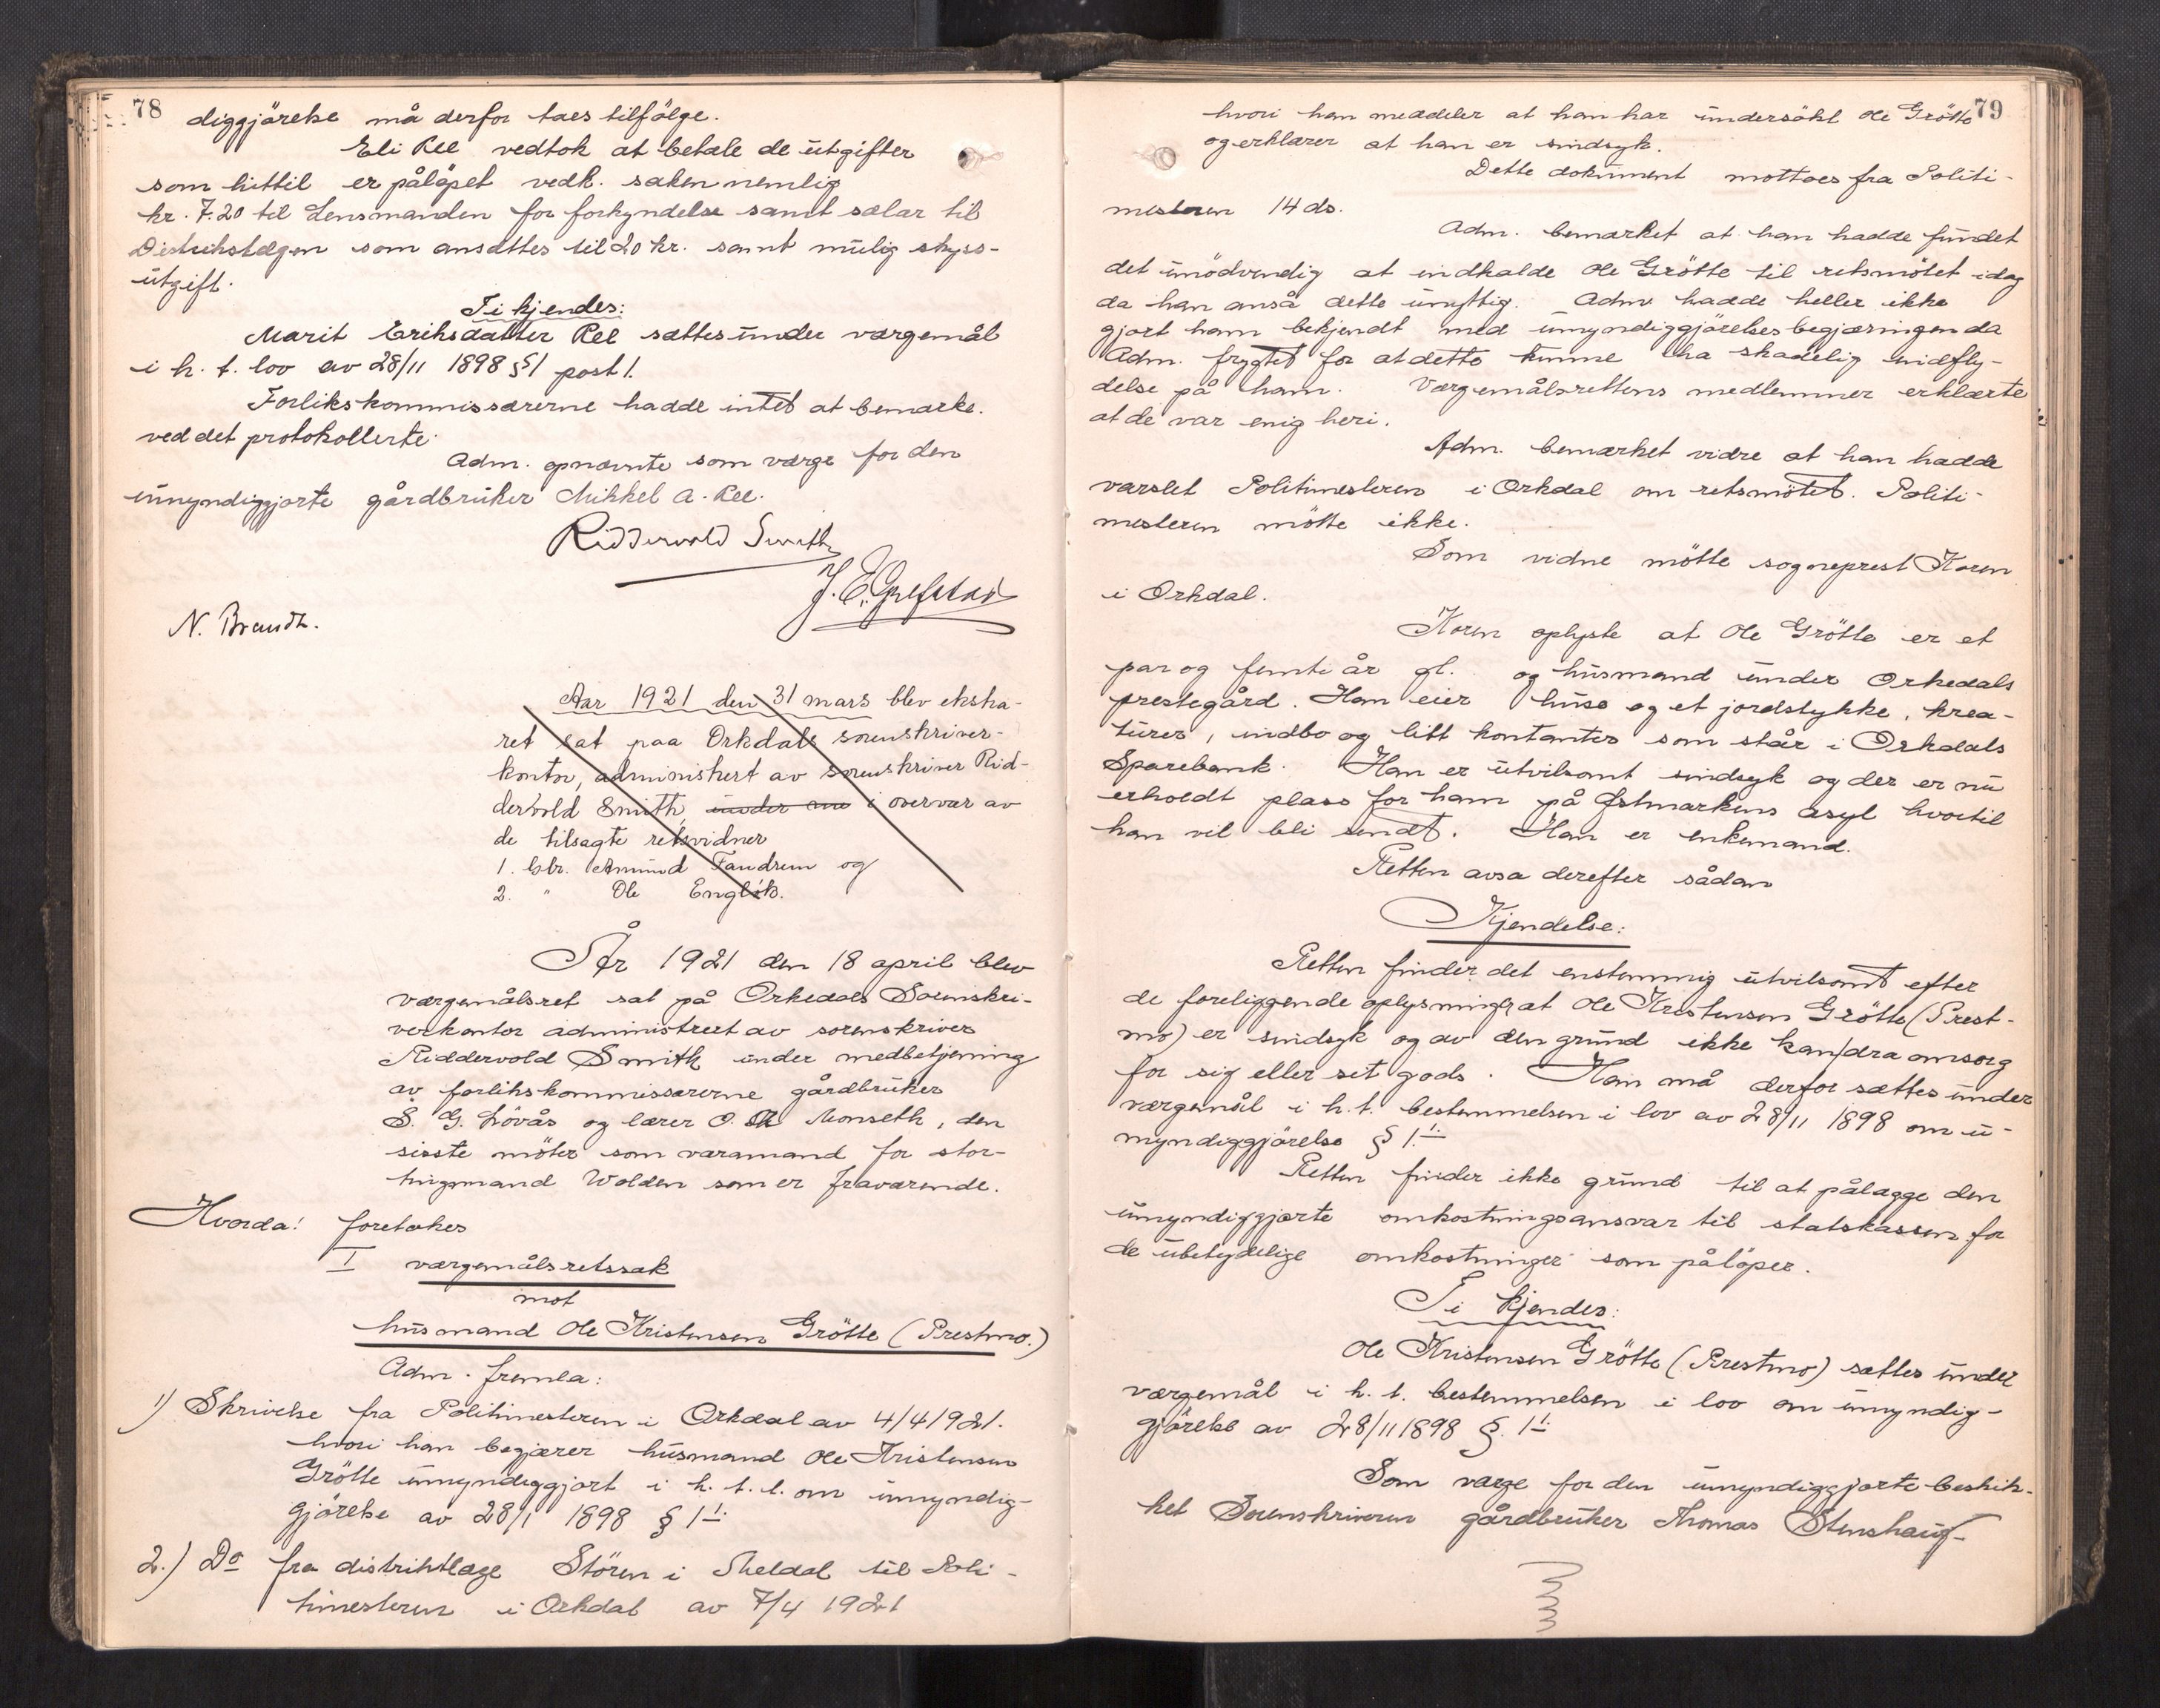 78
diggjörelse må derfor taes tilfölge.
Eli Ree vedtok at betale de utgifter
som hittil er påløpet vedk. saken nemlig
kr. 7.20 til Lensmanden for forkyndelse samt salar til
Distriktslægen som ansættes til 20 kr. samt mulig skyss-
utgift.
Ti kjendes:
Marit Eriksdatter Ree sættes under værgemål
i h. t. lov av 28/11 1898 § 1 post 1.
Forlikskommissærerne hadde intet at bemærke
ved det protokollerte.
Adm. opnævnte som værge for den
umyndiggjorte gårdbruker Mikkel A. Ree.
Riddervold Smith
J. E. Grefstad
N. Brandt.
Aar 1921 den 31 mars blev ekstra-
ret sat paa Orkdals sorenskriver-
kontor, administrert av sorenskriver Rid-
dervold Smith, under i overvær av
de tilsagte retsvidner
1. Gbr. Amund Fandrem og
2. " Ole Englik.
År 1921 den 18 april blev
værgemålsret sat på Orkedals Sorenskri-
verkontor administrert av sorenskriver
Riddervold Smith under medbetjening
av forlikskommissærerne gårdbruker
S. G. Lövås og lærer O. Monseth, den
sisste möter som varamand for stor-
tingsmand Wolden som er fraværende.
Hvorda! foretokes
I værgemålsretssak
mot
husmand Ole Kristensen Grötte (Prestmo.)
Adm. fremla:
1) Skrivelse fra Politimesteren i Orkdal av 4/4 1921.
hvori han begjærer husmand Ole Kristensen
Grötte umyndiggjort i h. t. l. om umyndig-
gjörelse av 28/11 1898 § 1 1.
2.) Do fra distriktlæge Stören i Meldal til Poli-
timesteren i Orkdal av 7/4 1921
79
hvori han meddeler at han har undersökt Ole Grötte
og erklærer at han er sindsyk.
Dette dokument mottoes fra Politi-
mesteren 14 ds.
Adm. bemærket at han hadde fundet
det unödvendig at indkalde Ole Grötte til retsmötet idag
da han anså dette unyttig. Adm. hadde heller ikke
gjort ham bekjendt med umyndiggjörelsesbegjæringen da
Adm. frygtet for at dette kunne ha skadelig indfly-
delse på ham. Værgemålsrettens medlemmer erklærte
at de var enig heri.
Adm. bemærket vidre at han hadde
varslet Politimesteren i Orkdal om retsmötet. Politi-
mesteren mötte ikke.
Som vidne mötte sogneprest Koren
i Orkdal.
Koren oplyste at Ole Grötte er et
par og femti år gl. og husmand under Orkedals
prestegård. Han eier huse og et jordstykke, krea-
turer, indbo og litt kontanter som står i Orkdals
Sparebank. Han er utvilsomt sindsyk og der er nu
erholdt plass for ham på Østmarkens asyl hvortil
han vil bli sendt. Han er enkemand.
Retten avsa derefter sådan
Kjendelse:
Retten finder det enstemmig utvilsomt efter
de foreliggende oplysninger at Ole Kristensen Grötte (Prest-
mo) er sindsyk og av den grund ikke kan dra omsorg
for sig eller set gods. Han må derfor sættes under
værgemål i h. t. bestemmelsen i lov av 28/11 1898 om u-
myndiggjörelse § 1 1.
Retten finder ikke grund til at pålægge den
umyndiggjorte omkostningsansvar til statskassen for
de ubetydelige omkostninger som påløper.
Ti kjendes:
Ole Kristensen Grötte (Prestmo) sættes under
værgemål i h. t. bestemmelsen i lov om umyndig-
gjörelse av 28/11 1898 §. 1 1.
Som værge for den umyndiggjorte beskik-
ket Sorenskriveren gårdbruker Thomas Stenshaug.